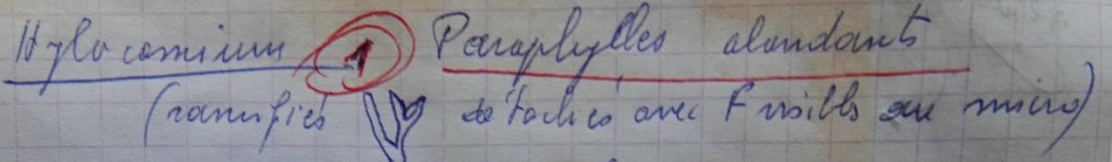 Hylocomium 1 Paraphylles abondants
(ramifiés détachés avec F visibles au micro)